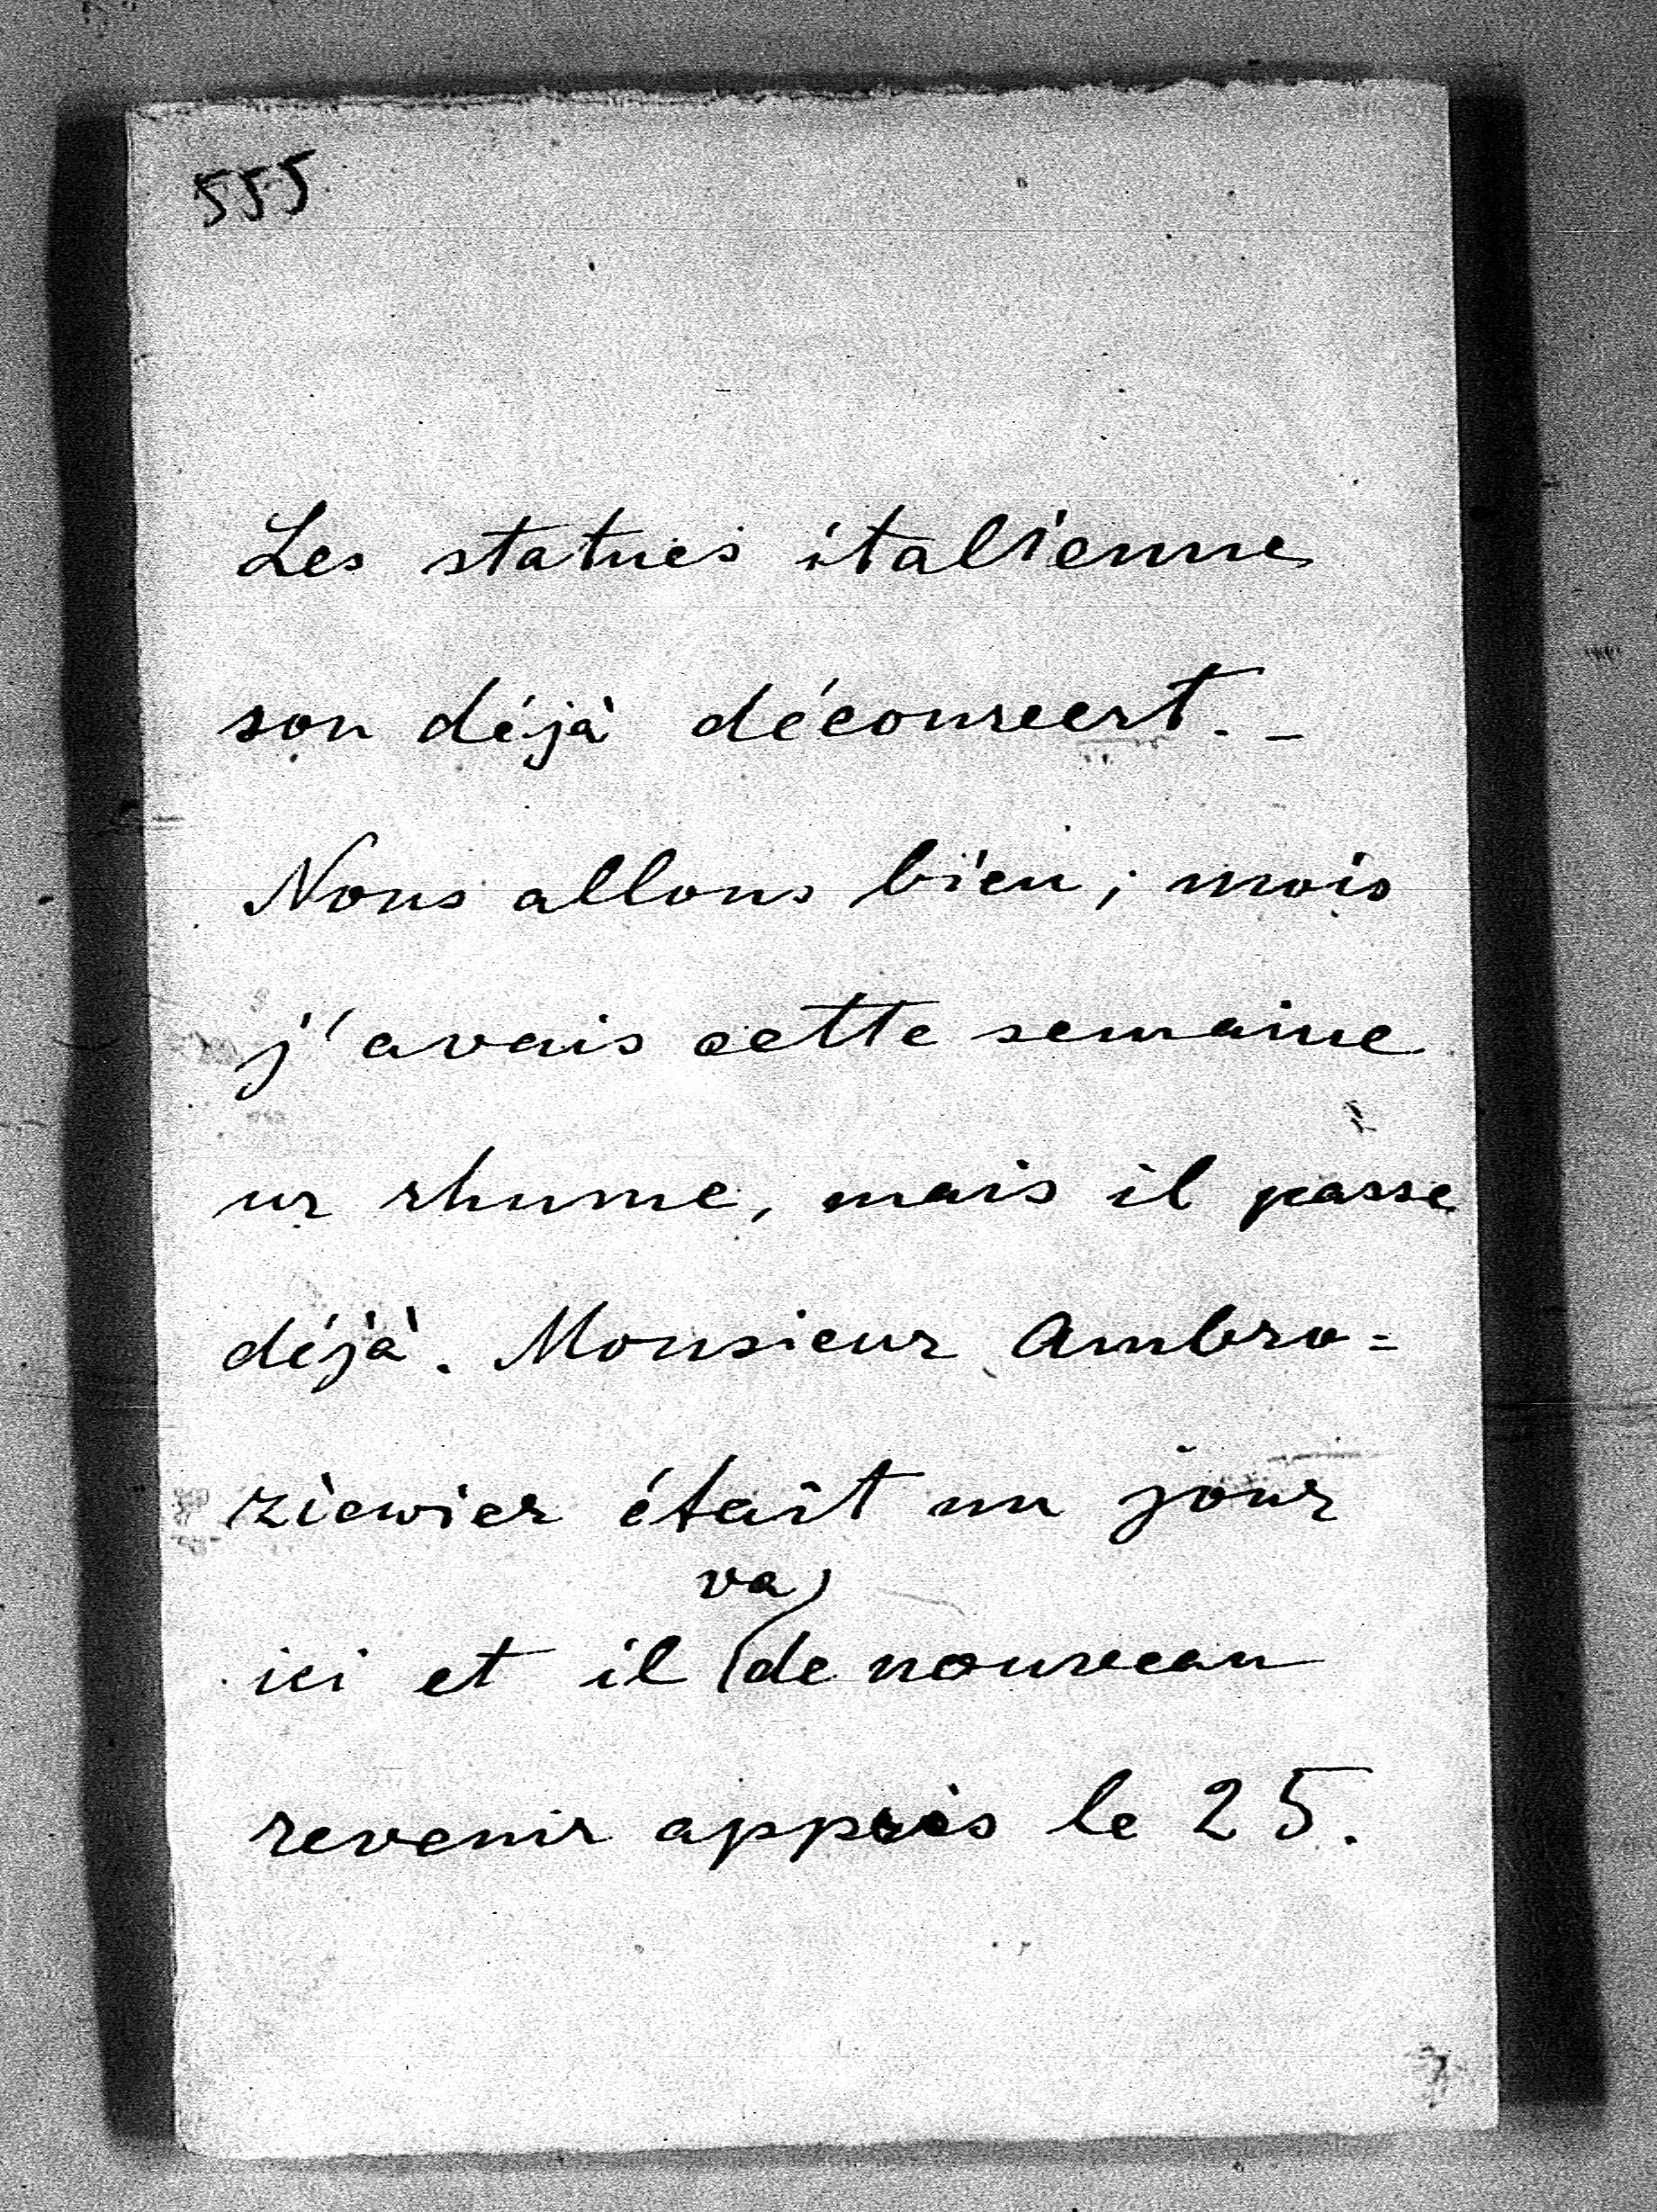 555
Les statues italienne
son déjà découreert. -
Nous allons bien; mois
j'avais cette semaine
ur rhume, mais il passe
déjà. Monsieur Ambro=
ziewier était un jour
va
ici et il de nouveau
revenir apprès le 25.